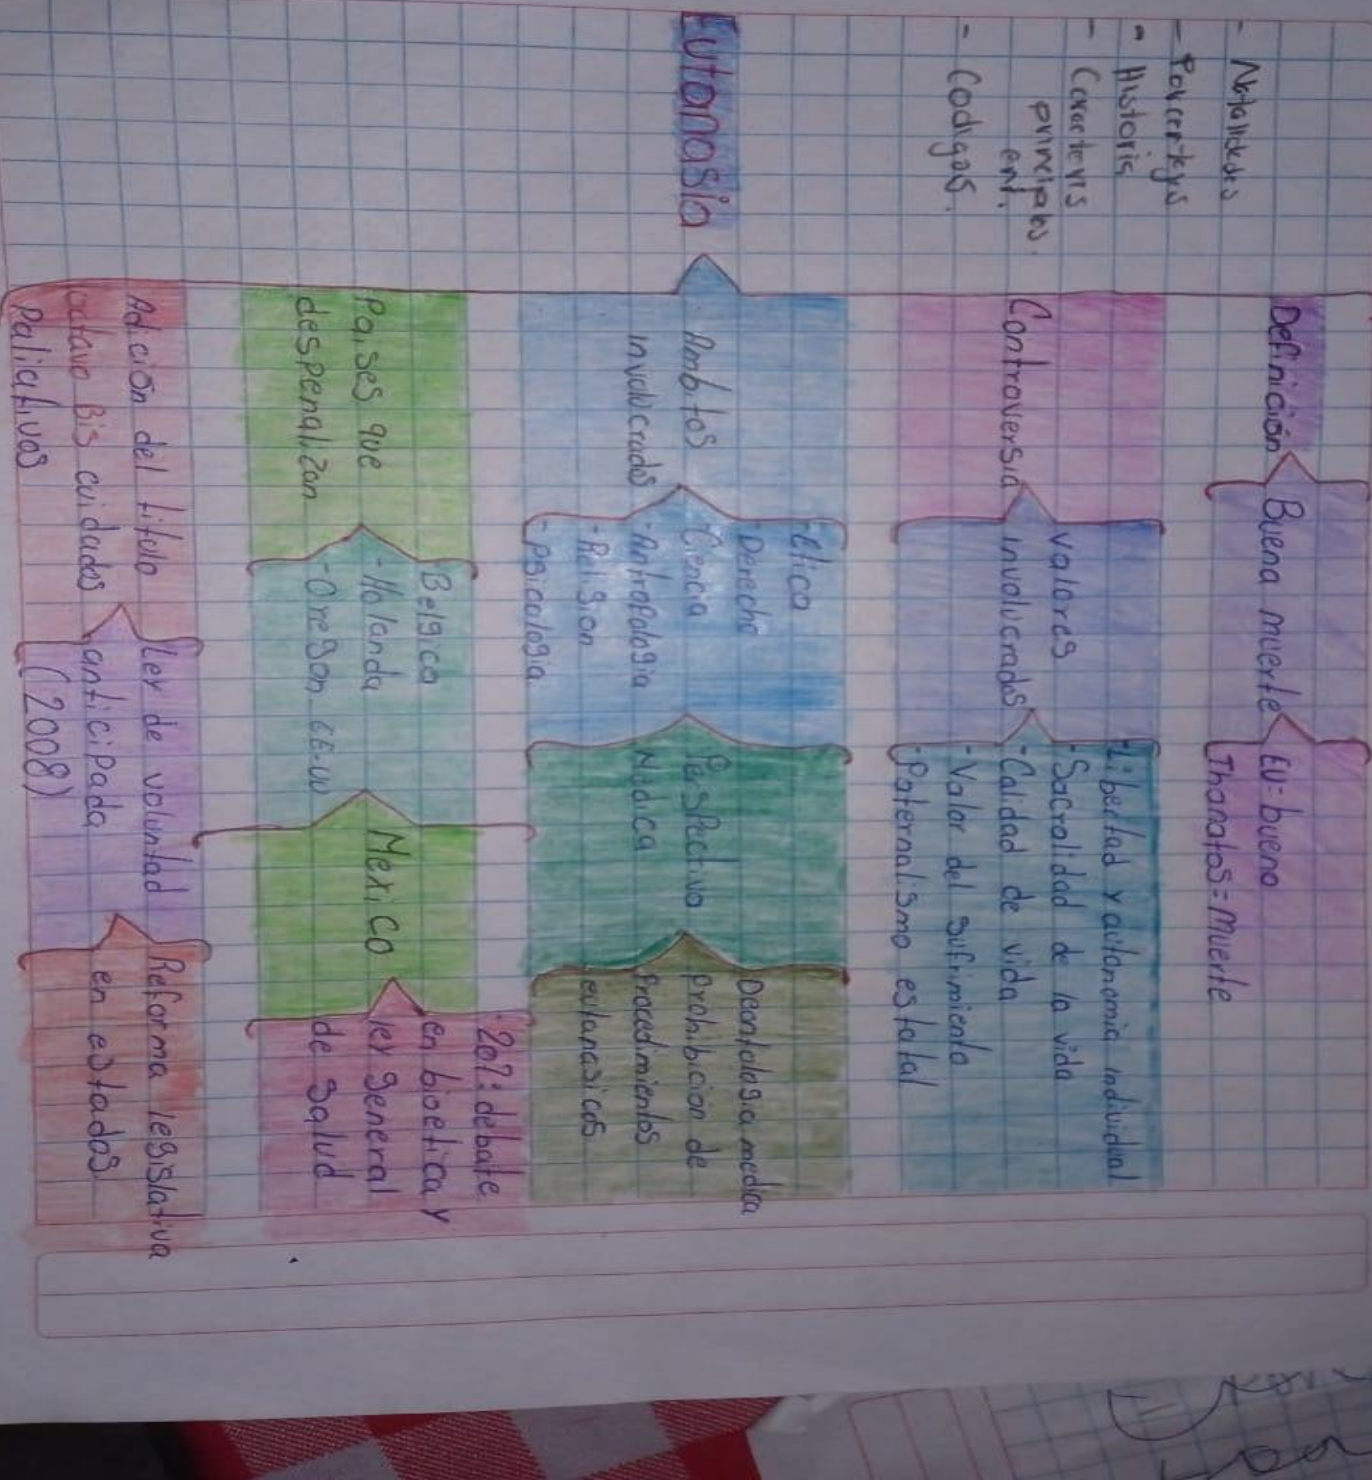 - Notalidades
- Porcentajes
- Historis
- Caracteris
principales.
ent.
- Codigos.
Eutanasia
Definición
Buena muerte
EU= bueno
Thanatos= Muerte
Controversia
valores
involucrados
- Libertad y autonomia individual
- Sacralidad de la vida
- Calidad de vida
- Valor del sufrimiento
- Paternalismo estatal
Ambitos
involucrados
- Etica
Derecho
Ciencia
- Antropologia
- Religion
- Psicologia
Perspectiva
Medica
Deontologia medica
Prohibicion de
Procedimientos
eutanasicos
Paises que
despenalizan
Belgica
- Holanda
- Oregon EE-UU
Mexico
debate
en bioetica y
ley general
de salud
Adición del titulo
octavo Bis cuidados
Paliativos
Ley de voluntad
anticipada
(2008)
Reforma legislativa
en estados